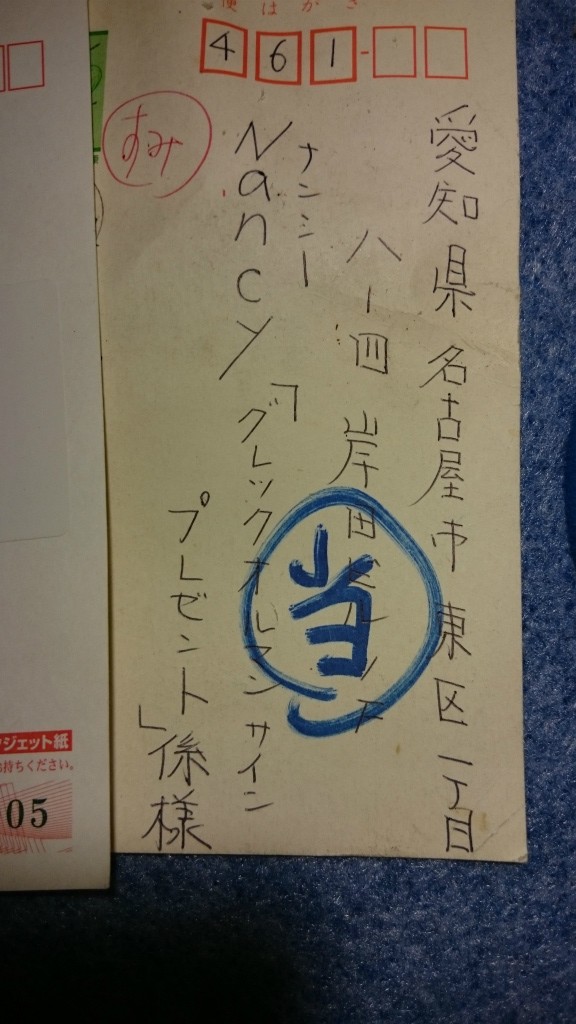 便はがき
461-
愛知県名古屋市東区一丁目
八ー四 岸田ビル1F
ナンシー
Nancy「グレッグオルマンサイン
プレゼント」係様
すみ
当
ンジェット紙
お持ちください。
05